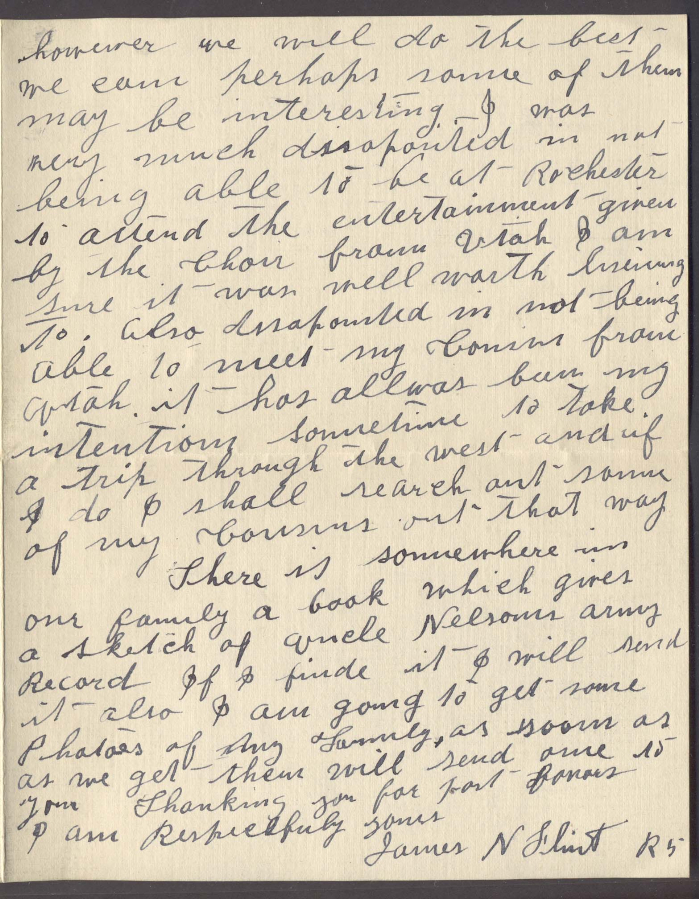 however we will do the best
we can perhaps some of them
may be interesting. I was
very much dissapointed in not
being able to be at Rochester
to attend the entertainment given
by the Choir from Utah I am
sure it was well worth lisening
to. also dissapointed in not being
able to meet my Cousins from
Utah. it has allwas been my
intentions sometime to take
a trip through the west and if
I do I shall search out some
of my Cousins out that way
There is somewhere in
our family a book which gives
a sketch of Uncle Nelsons army
Record If I finde it I will send
it also I am going to get some
Photoes of my Family, as soon as
as we get them will send one to
you Thanking you for past favors
I am Respectfuly yours
James N Flint R5